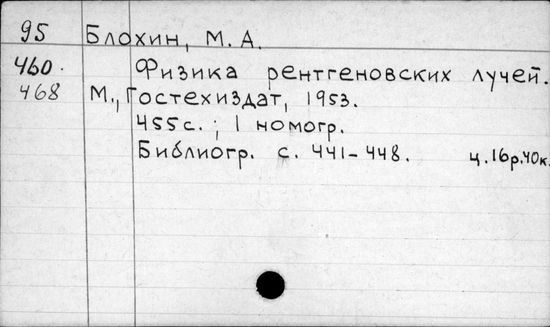 95 Блохин, М. А.
460. Физика рентгеновских лучей.
468 М., Гостехиздат, 1953.
455с.; 1 номогр.
Библиогр. с. 441-448. ц.16р.40к.